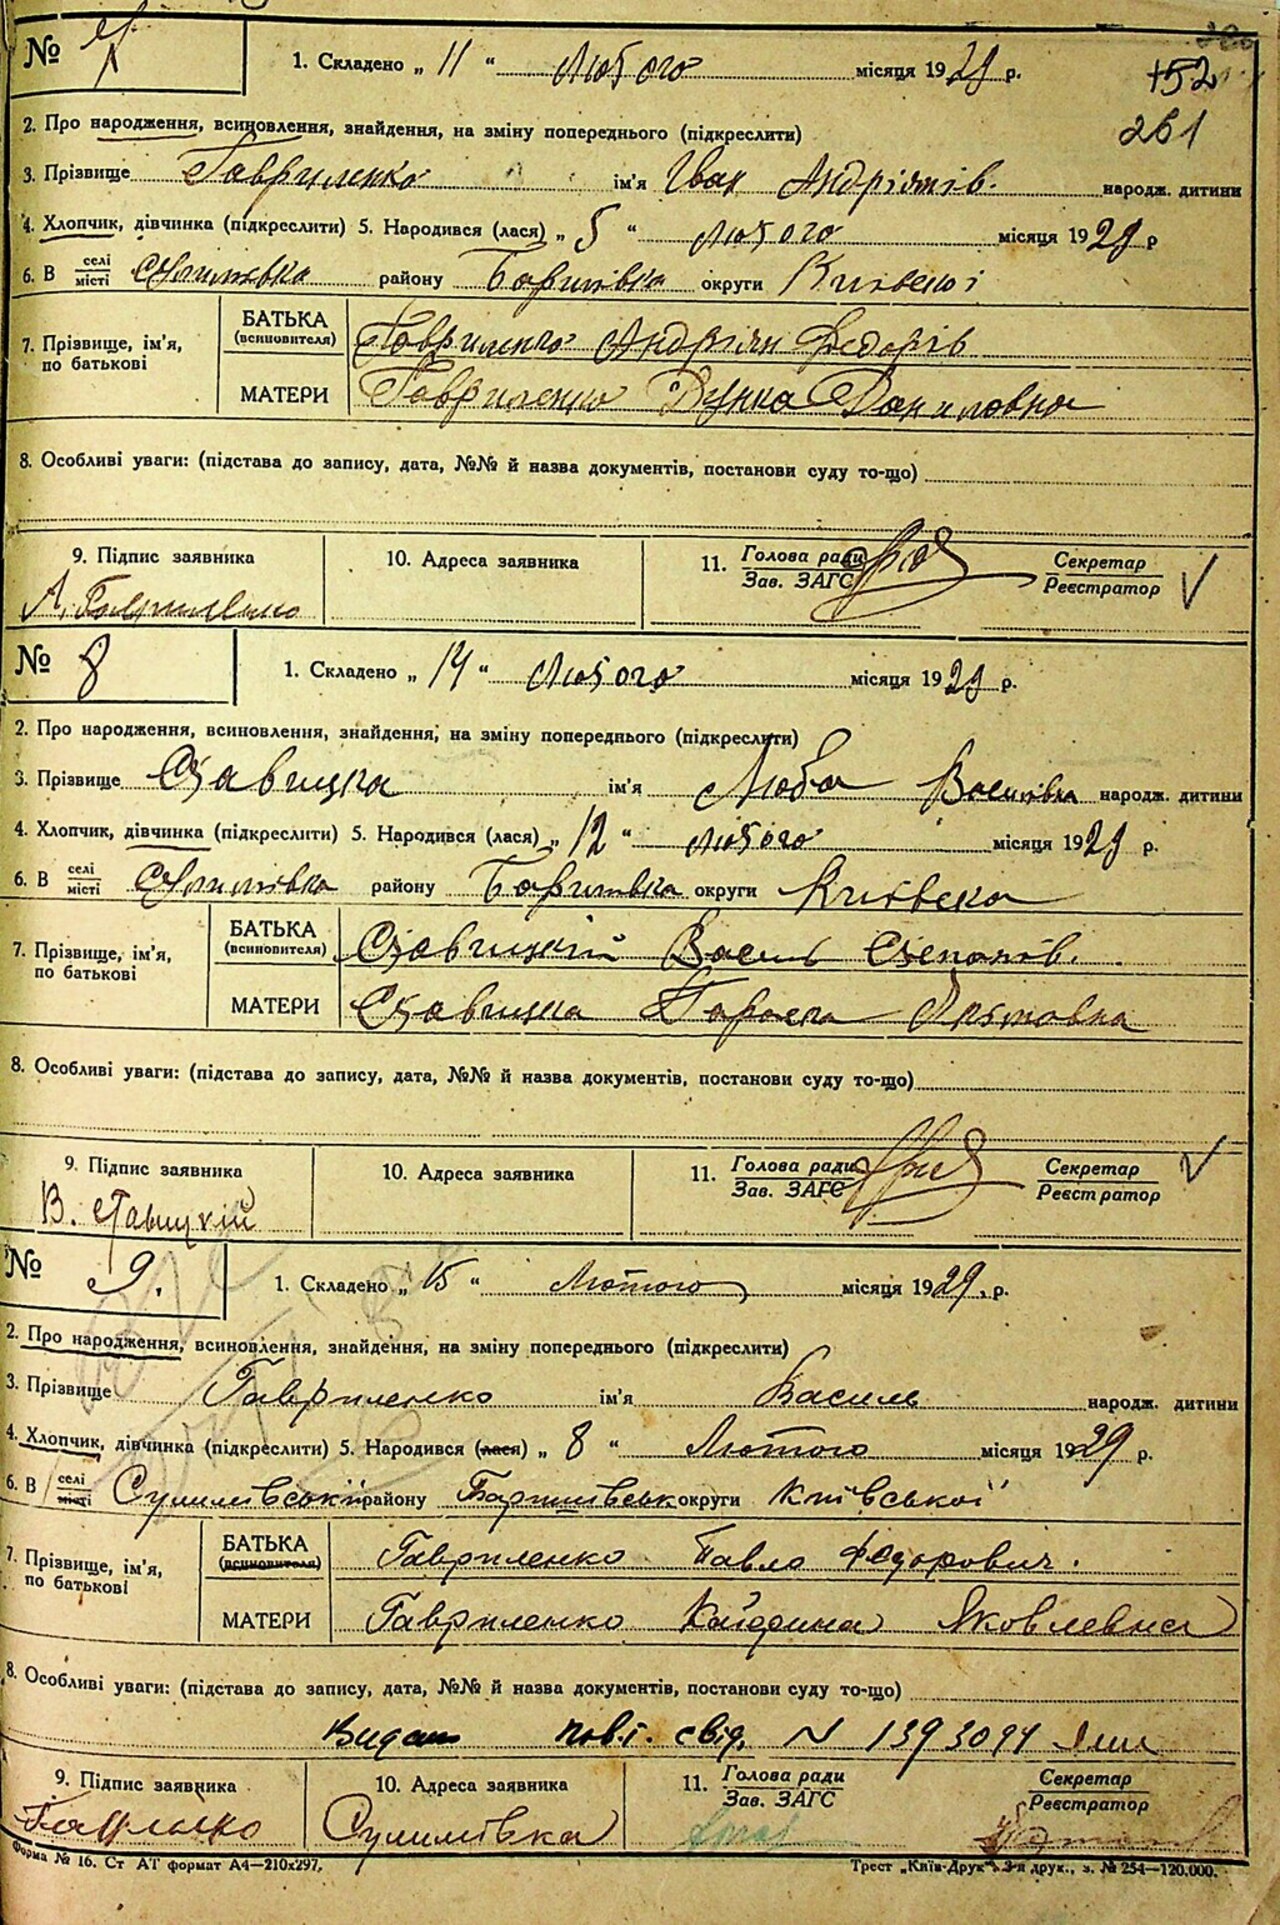 №
1. Складено „ 11 “ Лютого місяця 1929 р.
152
261
2. Про народження, всиновлення, знайдення, на зміну попереднього (підкреслити)
3. Прізвище Гавриленко ім'я Іван Андріянів. народж. дитини
4. Хлопчик, дівчинка (підкреслити) 5. Народився (лася) „ 5 “ Лютого місяця 1929 р
6. В селі / місті Сулимівка району Баришівка округи Київської
7. Прізвище, ім'я, по батькові
БАТЬКА (всиновителя) Гавриленко Андріян Федорів
МАТЕРИ Гавриленко Дунка Даниловна
8. Особливі уваги: (підстава до запису, дата, №№ й назва документів, постанови суду то-що)
9. Підпис заявника 10. Адреса заявника 11. Голова ради / Зав. ЗАГС Секретар / Реєстратор
А. Гавриленко
№ 8 1. Складено „ 14 “ Лютого місяця 1929 р.
2. Про народження, всиновлення, знайдення, на зміну попереднього (підкреслити)
3. Прізвище Ставицка ім'я Люба Василівка народж. дитини
4. Хлопчик, дівчинка (підкреслити) 5. Народився (лася) „ 12 “ лютого місяця 1929 р.
6. В селі / місті Сулимівка району Баришівка округи Київска
7. Прізвище, ім'я, по батькові
БАТЬКА (всиновителя) Ставицкій Василь Степанів.
МАТЕРИ Ставицка Параска
8. Особливі уваги: (підстава до запису, дата, №№ й назва документів, постанови суду то-що)
9. Підпис заявника 10. Адреса заявника 11. Голова ради / Зав. ЗАГС Секретар / Реєстратор
В. Ставицкій
№ 9. 1. Складено „ 15 “ Лютого місяця 1929. р.
2. Про народження, всиновлення, знайдення, на зміну попереднього (підкреслити)
3. Прізвище Гавриленко ім'я Василь народж. дитини
4. Хлопчик, дівчинка (підкреслити) 5. Народився (лася) „ 8 “ Лютого місяця 1929 р.
6. В селі / місті Сулимівській району Баришівськ округи Київської
7. Прізвище, ім'я, по батькові
БАТЬКА (всиновителя) Гавриленко Павло Федорович.
МАТЕРИ Гавриленко Катерина Яковлевна
8. Особливі уваги: (підстава до запису, дата, №№ й назва документів, постанови суду то-що)
Видан пов.т. свід. N 1393094
9. Підпис заявника 10. Адреса заявника 11. Голова ради / Зав. ЗАГС Секретар / Реєстратор
Гавриленко Сулимівка
Форма № 16. Ст АТ формат А4—210х297. Трест „Київ-Друк“ 3-я друк., з. № 254—120.000.